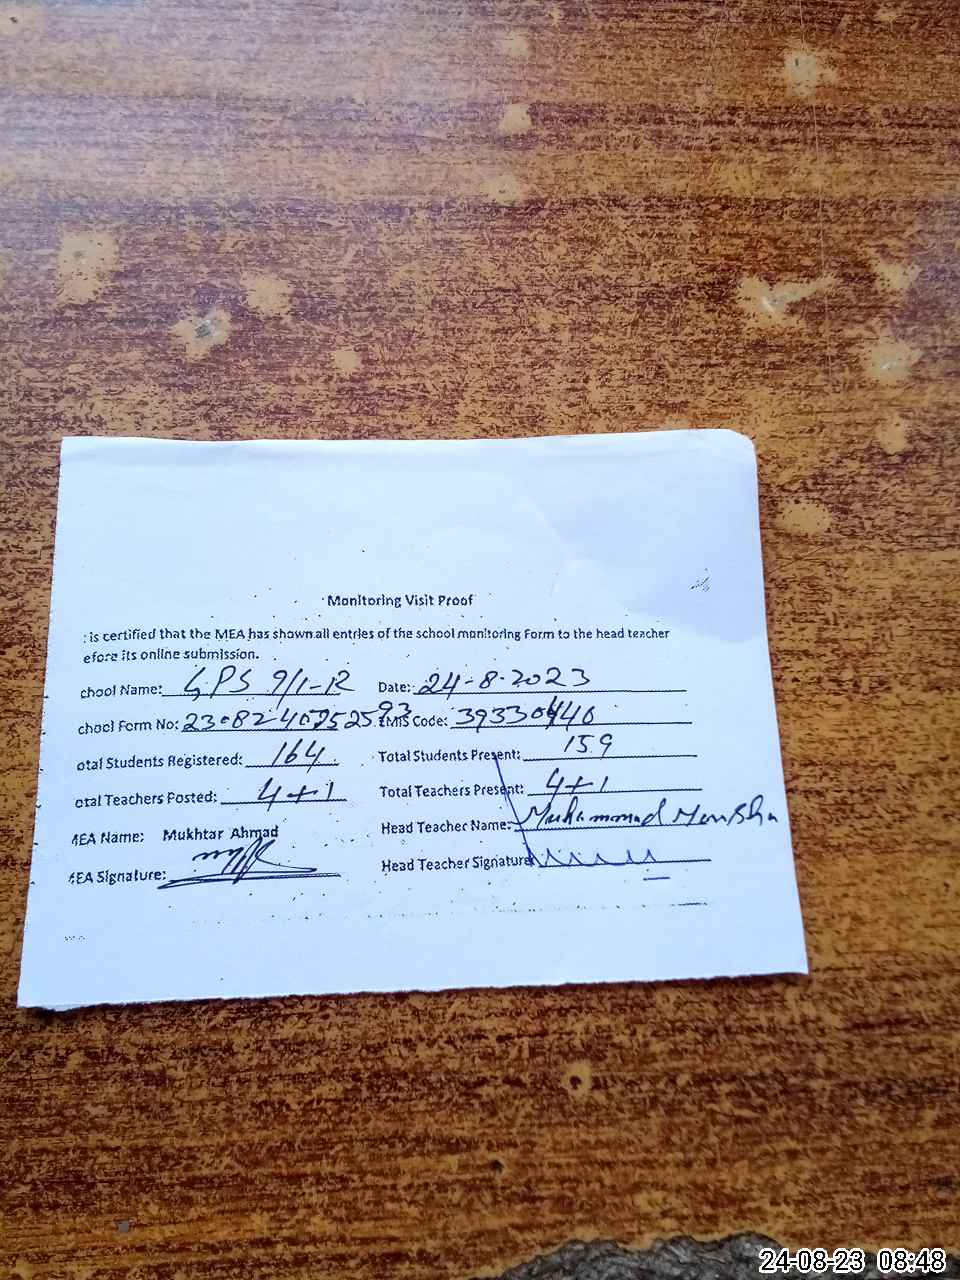 Monitoring Visit Proof
: is certified that the MEA has shown all entries of the school monitoring Form to the head teacher
efore its online submission.
chool Name: GPS 9/1-R Date: 24-8-2023
chool Form No: EMIS Code: 39330440
otal Students Registered: 164 Total Students Present: 159
otal Teachers Posted: 4+1 Total Teachers Present: 4+1
MEA Name: Mukhtar Ahmad Head Teacher Name: Muhammad Mansha
MEA Signature: Head Teacher Signature:
24-08-23 08:48